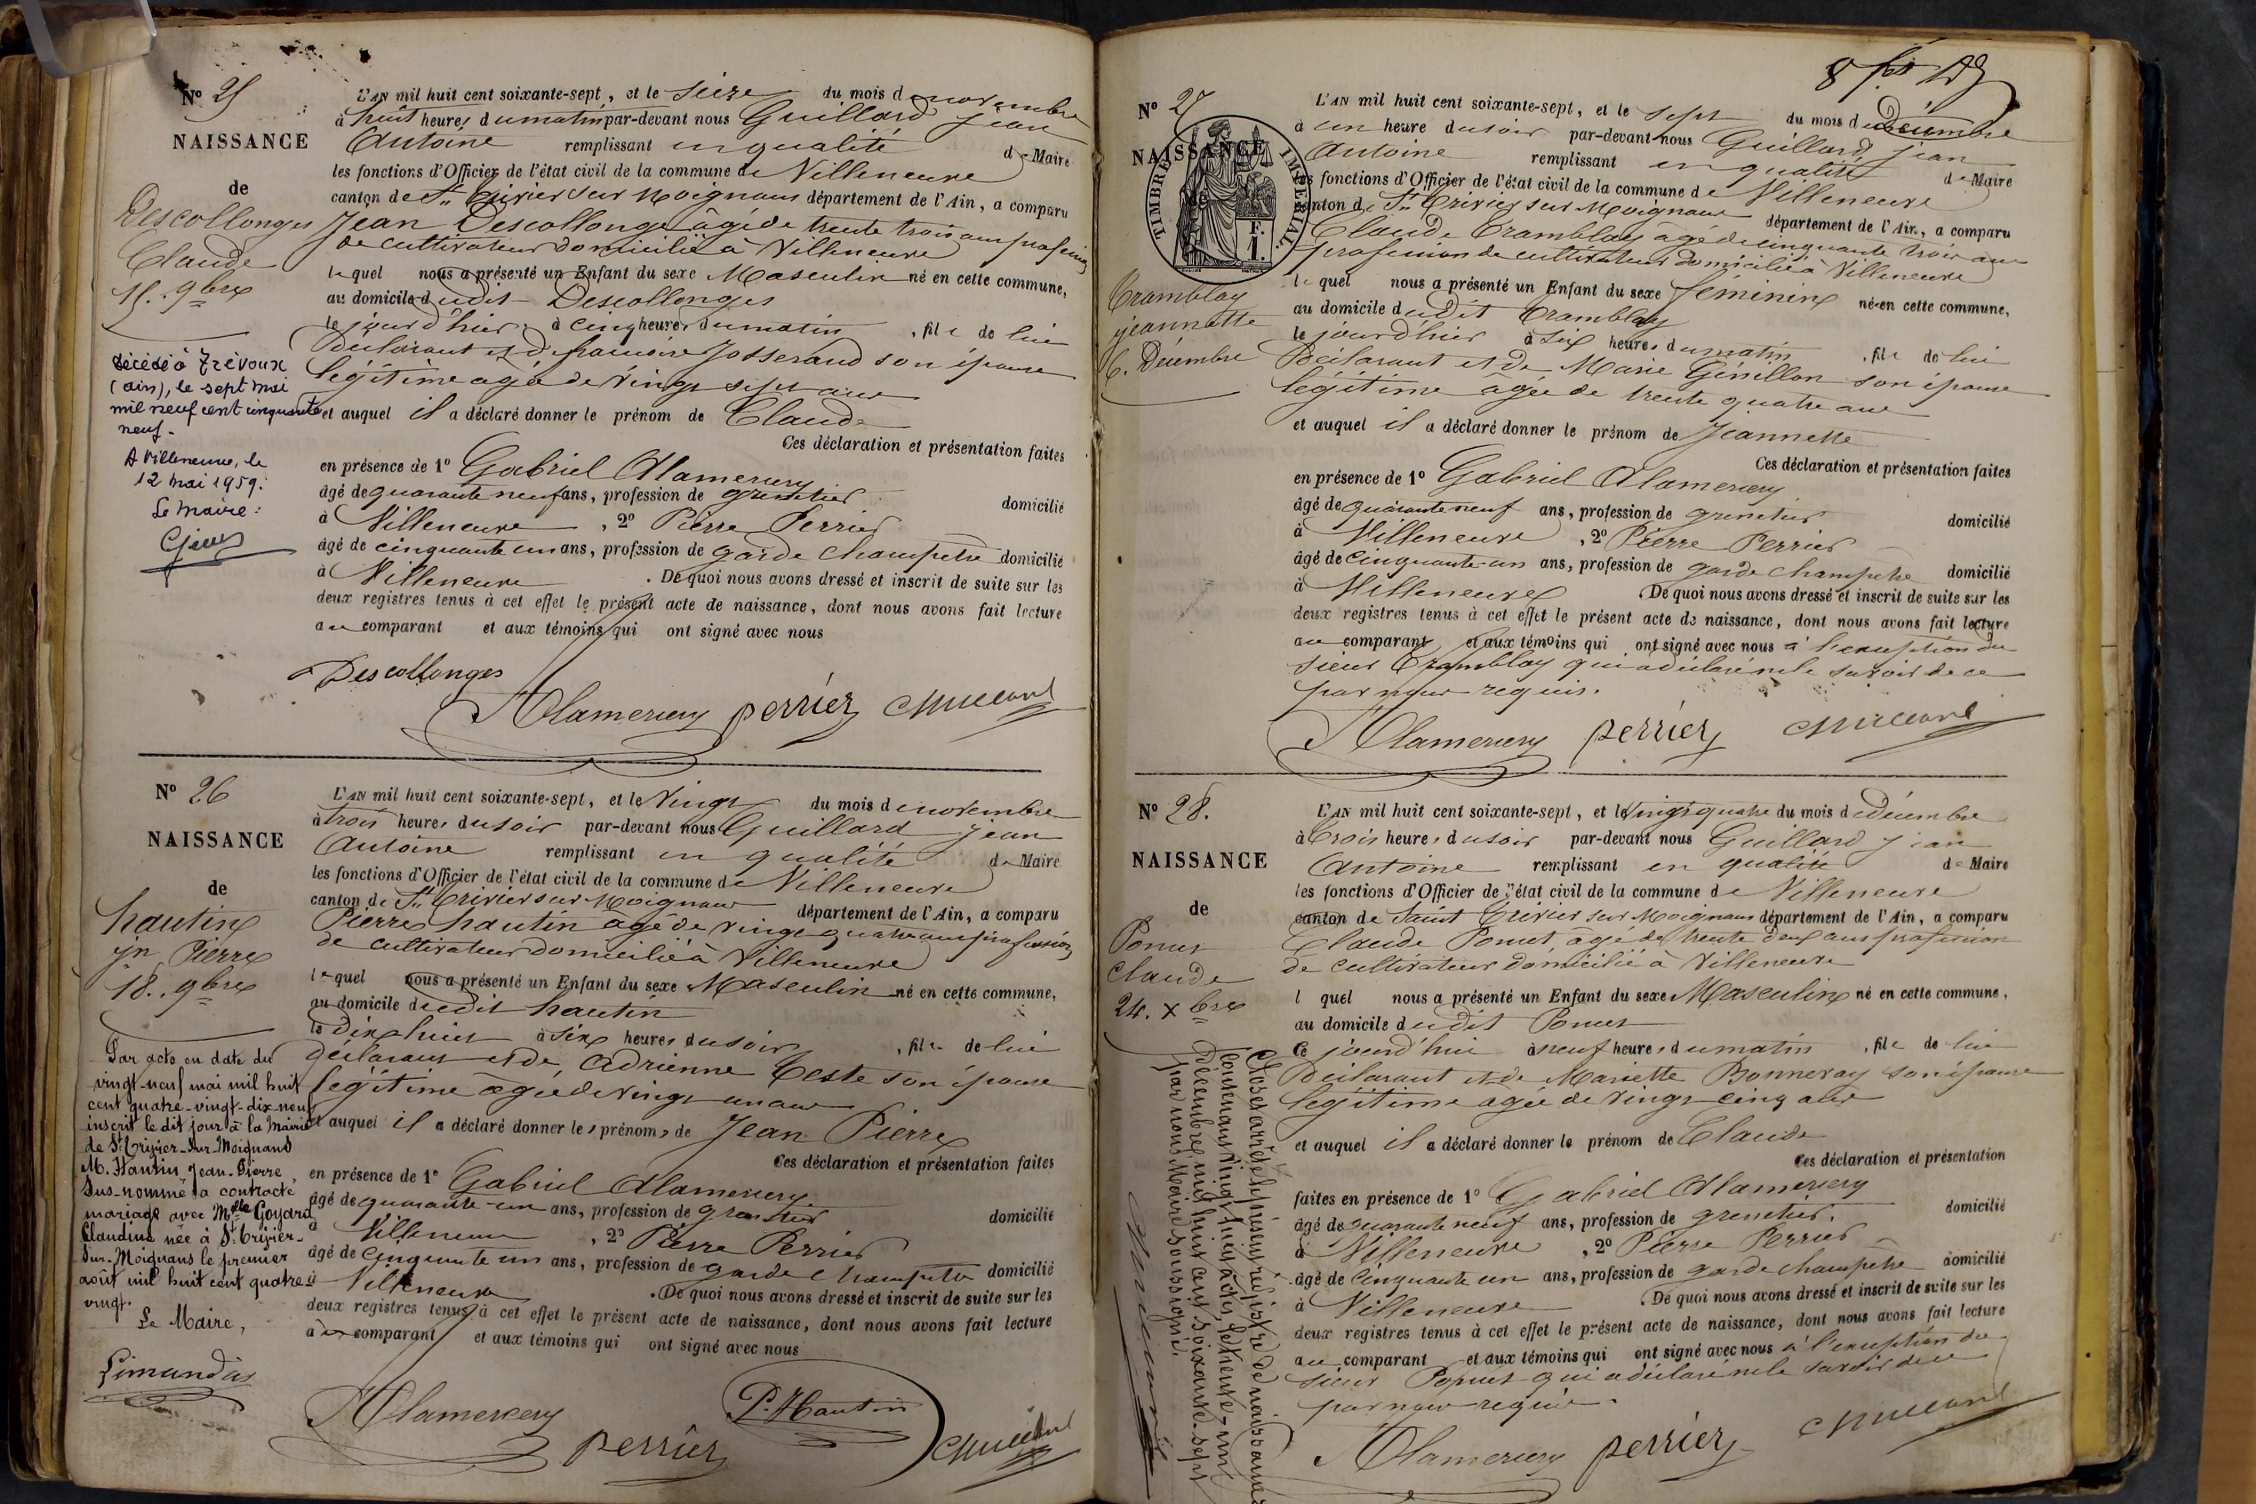 N° 25
NAISSANCE
de
Descollonges
Claude
15. 9bre
décédé à Trévoux
(ain), le sept mai
mil neuf cent cinquante
neuf.
A Villeneuve, le
12 mai 1959.
Le Maire :
L'AN mil huit cent soixante-sept, et le seize du mois de novembre
à huit heures du matin par-devant nous Guillard Jean
Antoine remplissant en qualité de Maire
les fonctions d'Officier de l'état civil de la commune de Villeneuve
canton de St Trivier sur Moignans département de l'Ain, a comparu
Jean Descollonges âgé de trente trois ans profession
de cultivateur domicilié à Villeneuve
lequel nous a présenté un Enfant du sexe Masculin né en cette commune,
au domicile dudit Descollonges
le jour d'hier à cinq heures du matin, fils de lui
déclarant et de françoise Josserand son épouse
légitime agée de vingt sept ans
et auquel il a déclaré donner le prénom de Claude
Ces déclaration et présentation faites
en présence de 1° Gabriel Alamercery
âgé de quarante neuf ans, profession de grenetier domicilié
à Villeneuve, 2° Pierre Perrier
âgé de cinquante un ans, profession de garde champêtre domicilié
à Villeneuve. De quoi nous avons dressé et inscrit de suite sur les
deux registres tenus à cet effet le présent acte de naissance, dont nous avons fait lecture
au comparant et aux témoins qui ont signé avec nous
Descollonges
Alamercery perrier Guillard
N° 26
NAISSANCE
de
hautin
jn Pierre
18. 9bre
Par acte en date du
vingt-neuf mai mil huit
cent quatre-vingt-dix-neuf
inscrit le dit jour à la Mairie
de St Trivier-sur-Moignans
M. Hautin Jean-Pierre,
sus-nommé a contracté
mariage avec Mlle Goyard
Claudine née à St Trivier-
sur-Moignans le premier
août mil huit cent quatre
vingt.
Le Maire,
Limandas
L'AN mil huit cent soixante-sept, et le vingt du mois de novembre
à trois heures du soir par-devant nous Guillard Jean
Antoine remplissant en qualité de Maire
les fonctions d'Officier de l'état civil de la commune de Villeneuve
canton de St Trivier sur Moignans département de l'Ain, a comparu
Pierre hautin âgé de vingt quatre ans profession
de cultivateur domicilié à Villeneuve
lequel nous a présenté un Enfant du sexe Masculin né en cette commune,
au domicile dudit hautin
le dix huit à six heures du soir, fils de lui
déclarant et de Adrienne Teste son épouse
légitime âgée de vingt un ans
et auquel il a déclaré donner les prénoms de Jean Pierre
Ces déclaration et présentation faites
en présence de 1° Gabriel Alamercery
âgé de quarante-un ans, profession de grenetier domicilié
à Villeneuve, 2° Pierre Perrier
âgé de cinquante un ans, profession de garde champêtre domicilié
à Villeneuve. De quoi nous avons dressé et inscrit de suite sur les
deux registres tenus à cet effet le présent acte de naissance, dont nous avons fait lecture
au comparant et aux témoins qui ont signé avec nous
Alamercery perrier P. Hautin Guillard
N° 27
NAISSANCE
de
TIMBRE IMPERIAL
F.
1.
Tramblay
jeannette
6. Décembre
L'AN mil huit cent soixante-sept, et le sept du mois de Décembre
à un heure du soir par-devant nous Guillard jean
Antoine remplissant en qualité de Maire
les fonctions d'Officier de l'état civil de la commune de Villeneuve
canton de St Trivier sur Moignans département de l'Ain, a comparu
Claude Tramblay âgé de cinquante trois ans
profession de cultivateur domicilié à Villeneuve
lequel nous a présenté un Enfant du sexe féminin né en cette commune,
au domicile dudit Tramblay
le jour d'hier à six heures du matin, fille de lui
Déclarant et de Marie Génillon son épouse
légitime âgée de trente quatre ans
et auquel il a déclaré donner le prénom de Jeannette
Ces déclaration et présentation faites
en présence de 1° Gabriel Alamercery
âgé de quarante neuf ans, profession de grenetier domicilié
à Villeneuve, 2° Pierre Perrier
âgé de cinquante-un ans, profession de garde champêtre domicilié
à Villeneuve De quoi nous avons dressé et inscrit de suite sur les
deux registres tenus à cet effet le présent acte de naissance, dont nous avons fait lecture
au comparant et aux témoins qui ont signé avec nous à l'exception du
sieur Tramblay qui a déclaré ne le savoir de ce
par nous requis.
Alamercery perrier Guillard
N° 28.
NAISSANCE
de
Pomet
Claude
24. Xbre
L'AN mil huit cent soixante-sept, et le vingt quatre du mois de décembre
à trois heures du soir par-devant nous Guillard jean
Antoine remplissant en qualité de Maire
les fonctions d'Officier de l'état civil de la commune de Villeneuve
canton de Saint Trivier sur Moignans département de l'Ain, a comparu
Claude Pomet, âgé de trente deux ans profession
de cultivateur domicilié à Villeneuve
l quel nous a présenté un Enfant du sexe Masculin né en cette commune,
au domicile dudit Pomet
Ce jourd'hui à neuf heures du matin, fils de lui
Déclarant et de Mariette Bonneray son épouse
légitime agée de vingt cinq ans
et auquel il a déclaré donner le prénom de Claude
Ces déclaration et présentation
faites en présence de 1° Gabriel Alamercery domicilié
âgé de quarante neuf ans, profession de grenetier.
à Villeneuve, 2° Pierre Perrier
âgé de cinquante un ans, profession de garde champêtre domicilié
à Villeneuve. De quoi nous avons dressé et inscrit de suite sur les
deux registres tenus à cet effet le présent acte de naissance, dont nous avons fait lecture
au comparant et aux témoins qui ont signé avec nous à l'exception du
sieur Pomet qui a déclaré ne le savoir de ce
par nous requis.
Alamercery perrier Guillard
Clos et arrêté le présent registre de naissances
contenant vingt huit actes, le trente-un
Décembre mil huit cent soixante-sept
par nous Maire soussigné.
Guillard